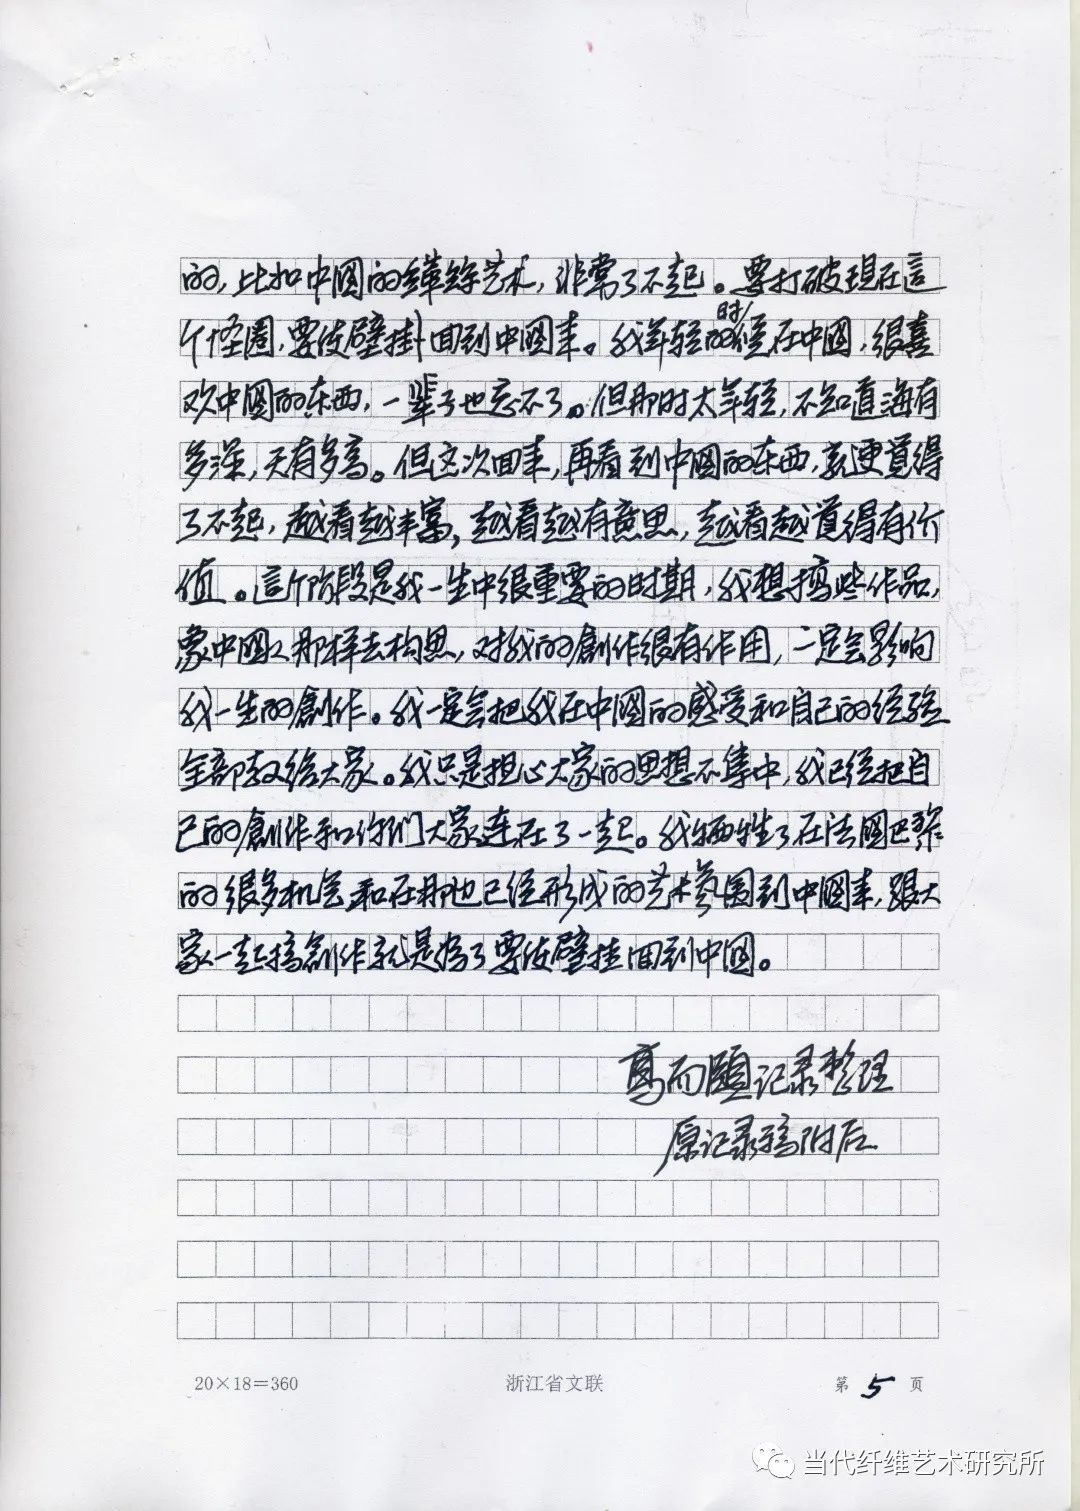 的，比如中國的缂丝艺术，非常了不起。要打破現在這
个怪圈，要使壁掛回到中國来。我年轻的时候在中國，很喜
欢中國的东西，一辈子也忘不了。但那时太年轻，不知道海有
多深，天有多高。但这次回来，再看到中國的东西，就更覚得
了不起，越看越丰富，越看越有意思，越看越觉得有价
值。這个阶段是我一生中很重要的时期，我想搞些作品，
象中國人那样去构思，对我的創作很有作用，一定会影响
我一生的創作。我一定会把我在中國的感受和自己的经验
全部教给大家。我只是担心大家的思想不集中，我已经把自
己的創作和你们大家连在了一起。我牺牲了在法國巴黎
的很多机会和在那边已经形成的艺术氛围到中國来，跟大
家一起搞創作就是为了要使壁挂回到中國。
高而頤记录整理
原记录稿附后
20×18=360 浙江省文联 第 5 页
当代纤维艺术研究所